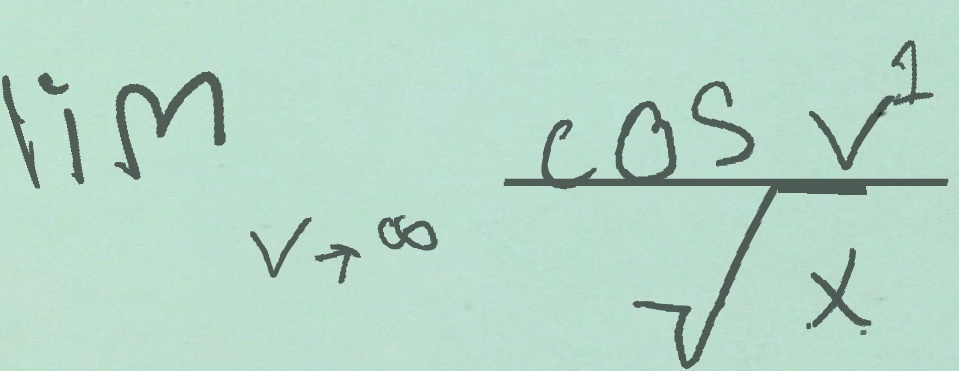 lim_{v→∞} \frac{cos v^1}{\sqrt{x}}